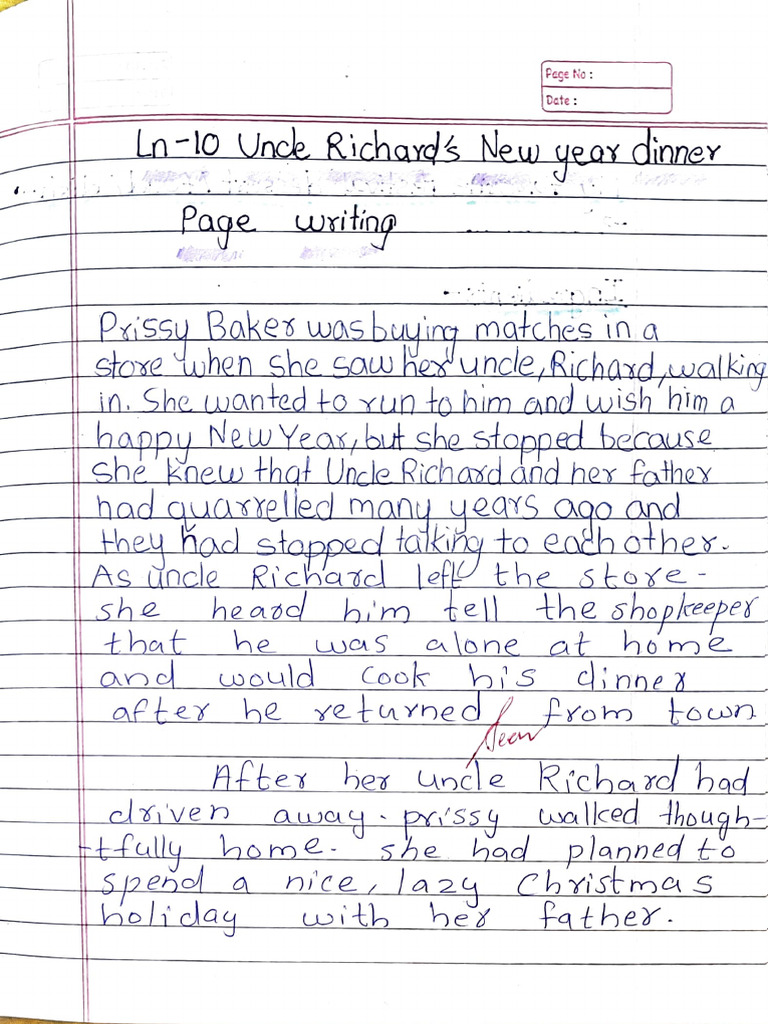 Page No :
Date :
Ln-10 Uncle Richard's New year dinner
Page writing
Prissy Baker was buying matches in a
store when she saw her uncle, Richard, walking
in. She wanted to run to him and wish him a
happy New Year, but she stopped because
she knew that Uncle Richard and her father
had quarrelled many years ago and
they had stopped talking to each other.
As uncle Richard left the store -
she heard him tell the shopkeeper
that he was alone at home
and would cook his dinner
after he returned from town
Seen
After her uncle Richard had
driven away. prissy walked though-
-tfully home. she had planned to
spend a nice, lazy Christmas
holiday with her father.